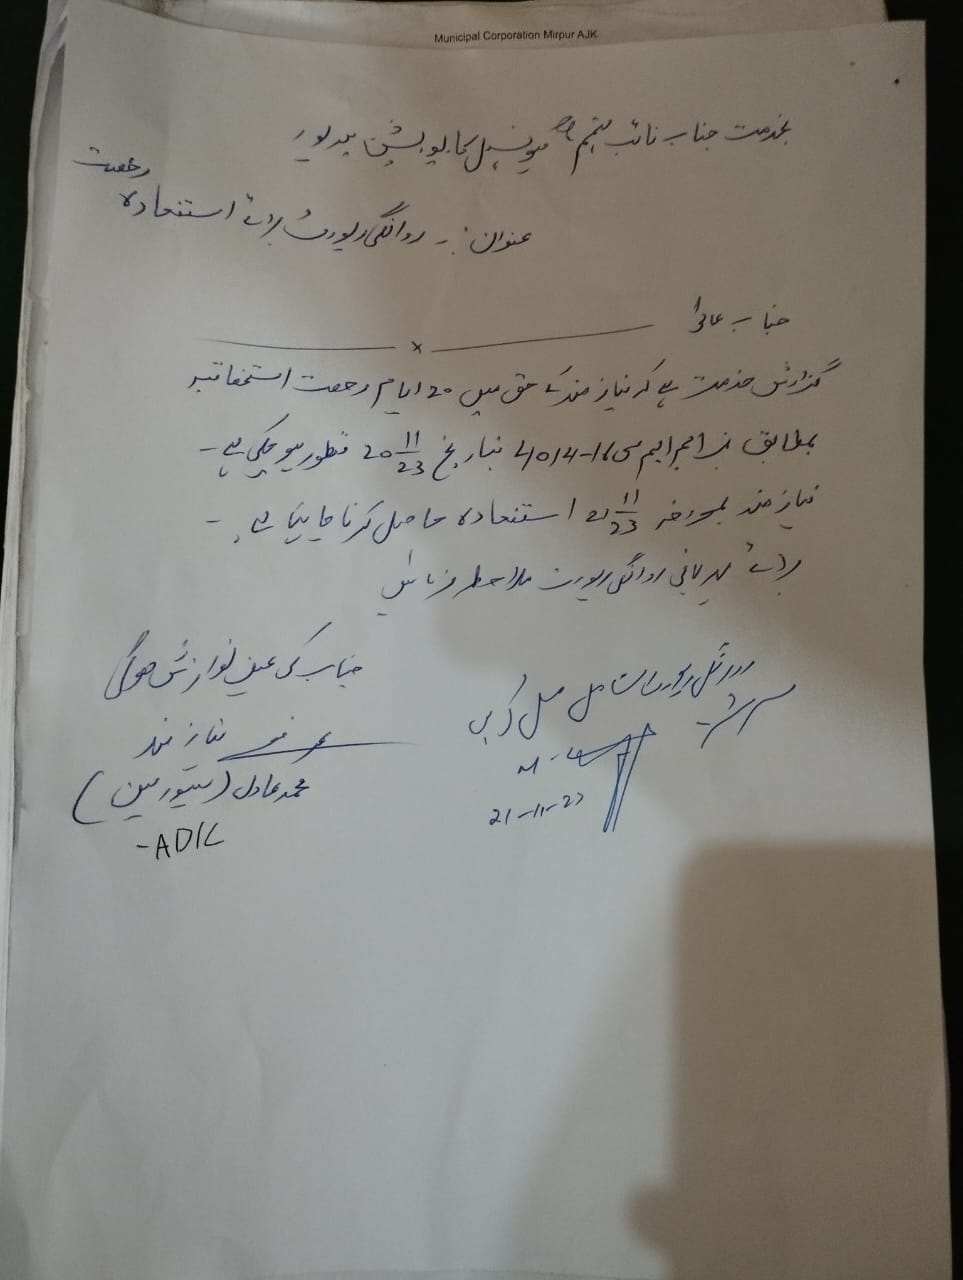 Municipal Corporation Mirpur AJK
بخدمت جناب نائب مہتمم میونسپل کارپوریشن میرپور
عنوان:۔ روانگی رپورٹ برائے استفادہ رخصت
جناب عالی!
گزارش خدمت ہے کہ نیاز مند کے حق میں 20 ایام رخصت
بمطابق ایم سی 4014-16 بتاریخ 20 11/23 منظور ہو چکی ہے۔
نیاز مند بمورخہ 21 11/23 استفادہ حاصل کرنا چاہتا ہے۔
برائے مہربانی روانگی رپورٹ ملاحظہ فرمائیں
جناب کی عین نوازش ہوگی
نیاز مند
محمد عادل (سیور مین)
-ADIL
رپورٹ شامل مسل کریں
21-11-23